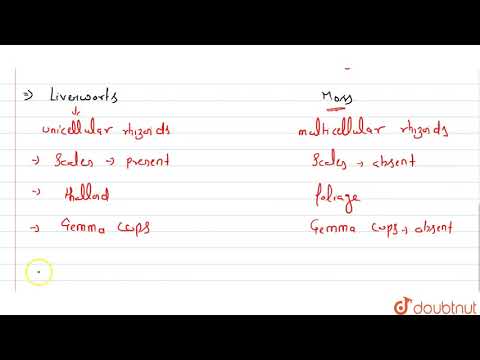 ⇒ Liverworts Moss
unicellular rhizoids multicellular rhizoids
→ Scales → present Scales → absent
→ thalloid foliage
→ Gemma cups Gemma cups → absent
doubtnut